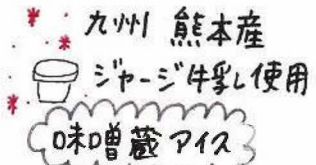 九州 熊本産
ジャージ牛乳し使用
味噌蔵アイス